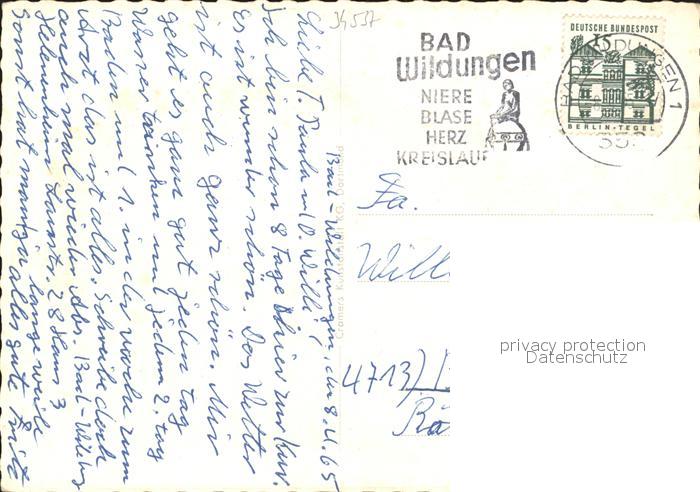 34537
BAD
Wildungen
NIERE
BLASE
HERZ
KREISLAUF
DEUTSCHE BUNDESPOST
15
BERLIN-TEGEL
BAD WILDUNGEN 1
Bad-Wildungen, den 8.4.65
Liebe T. Paula u. O. Willi!
Ich bin schon 8 Tage hier zur Kur.
es ist wunder schön. Das Wetter
ist auch ganz schön. Mir
geht es ganz gut jeden tag
Wasser trinken und jedem 2. tag
Baden und 1. in der woche zum
Arzt das ist alles. Schreibe doch
auch mal wieder Abs. Bad-Wildung
28 Haus 3
sonst hat man ja alles gut mit
lange weile
Cramers Kunstanstalt KG, Dortmund
Fa.
Will
4713)
privacy protection
Datenschutz